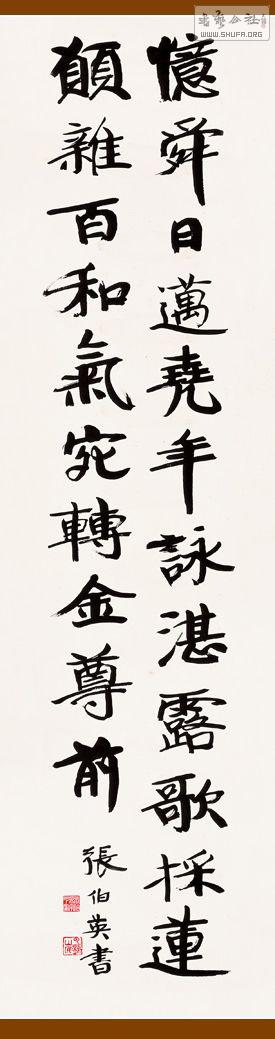 憶舜日邁堯年詠湛露歌採蓮
願雜百和氣宛轉金尊前
張伯英書
書藝公社
WWW.SHUFA.ORG